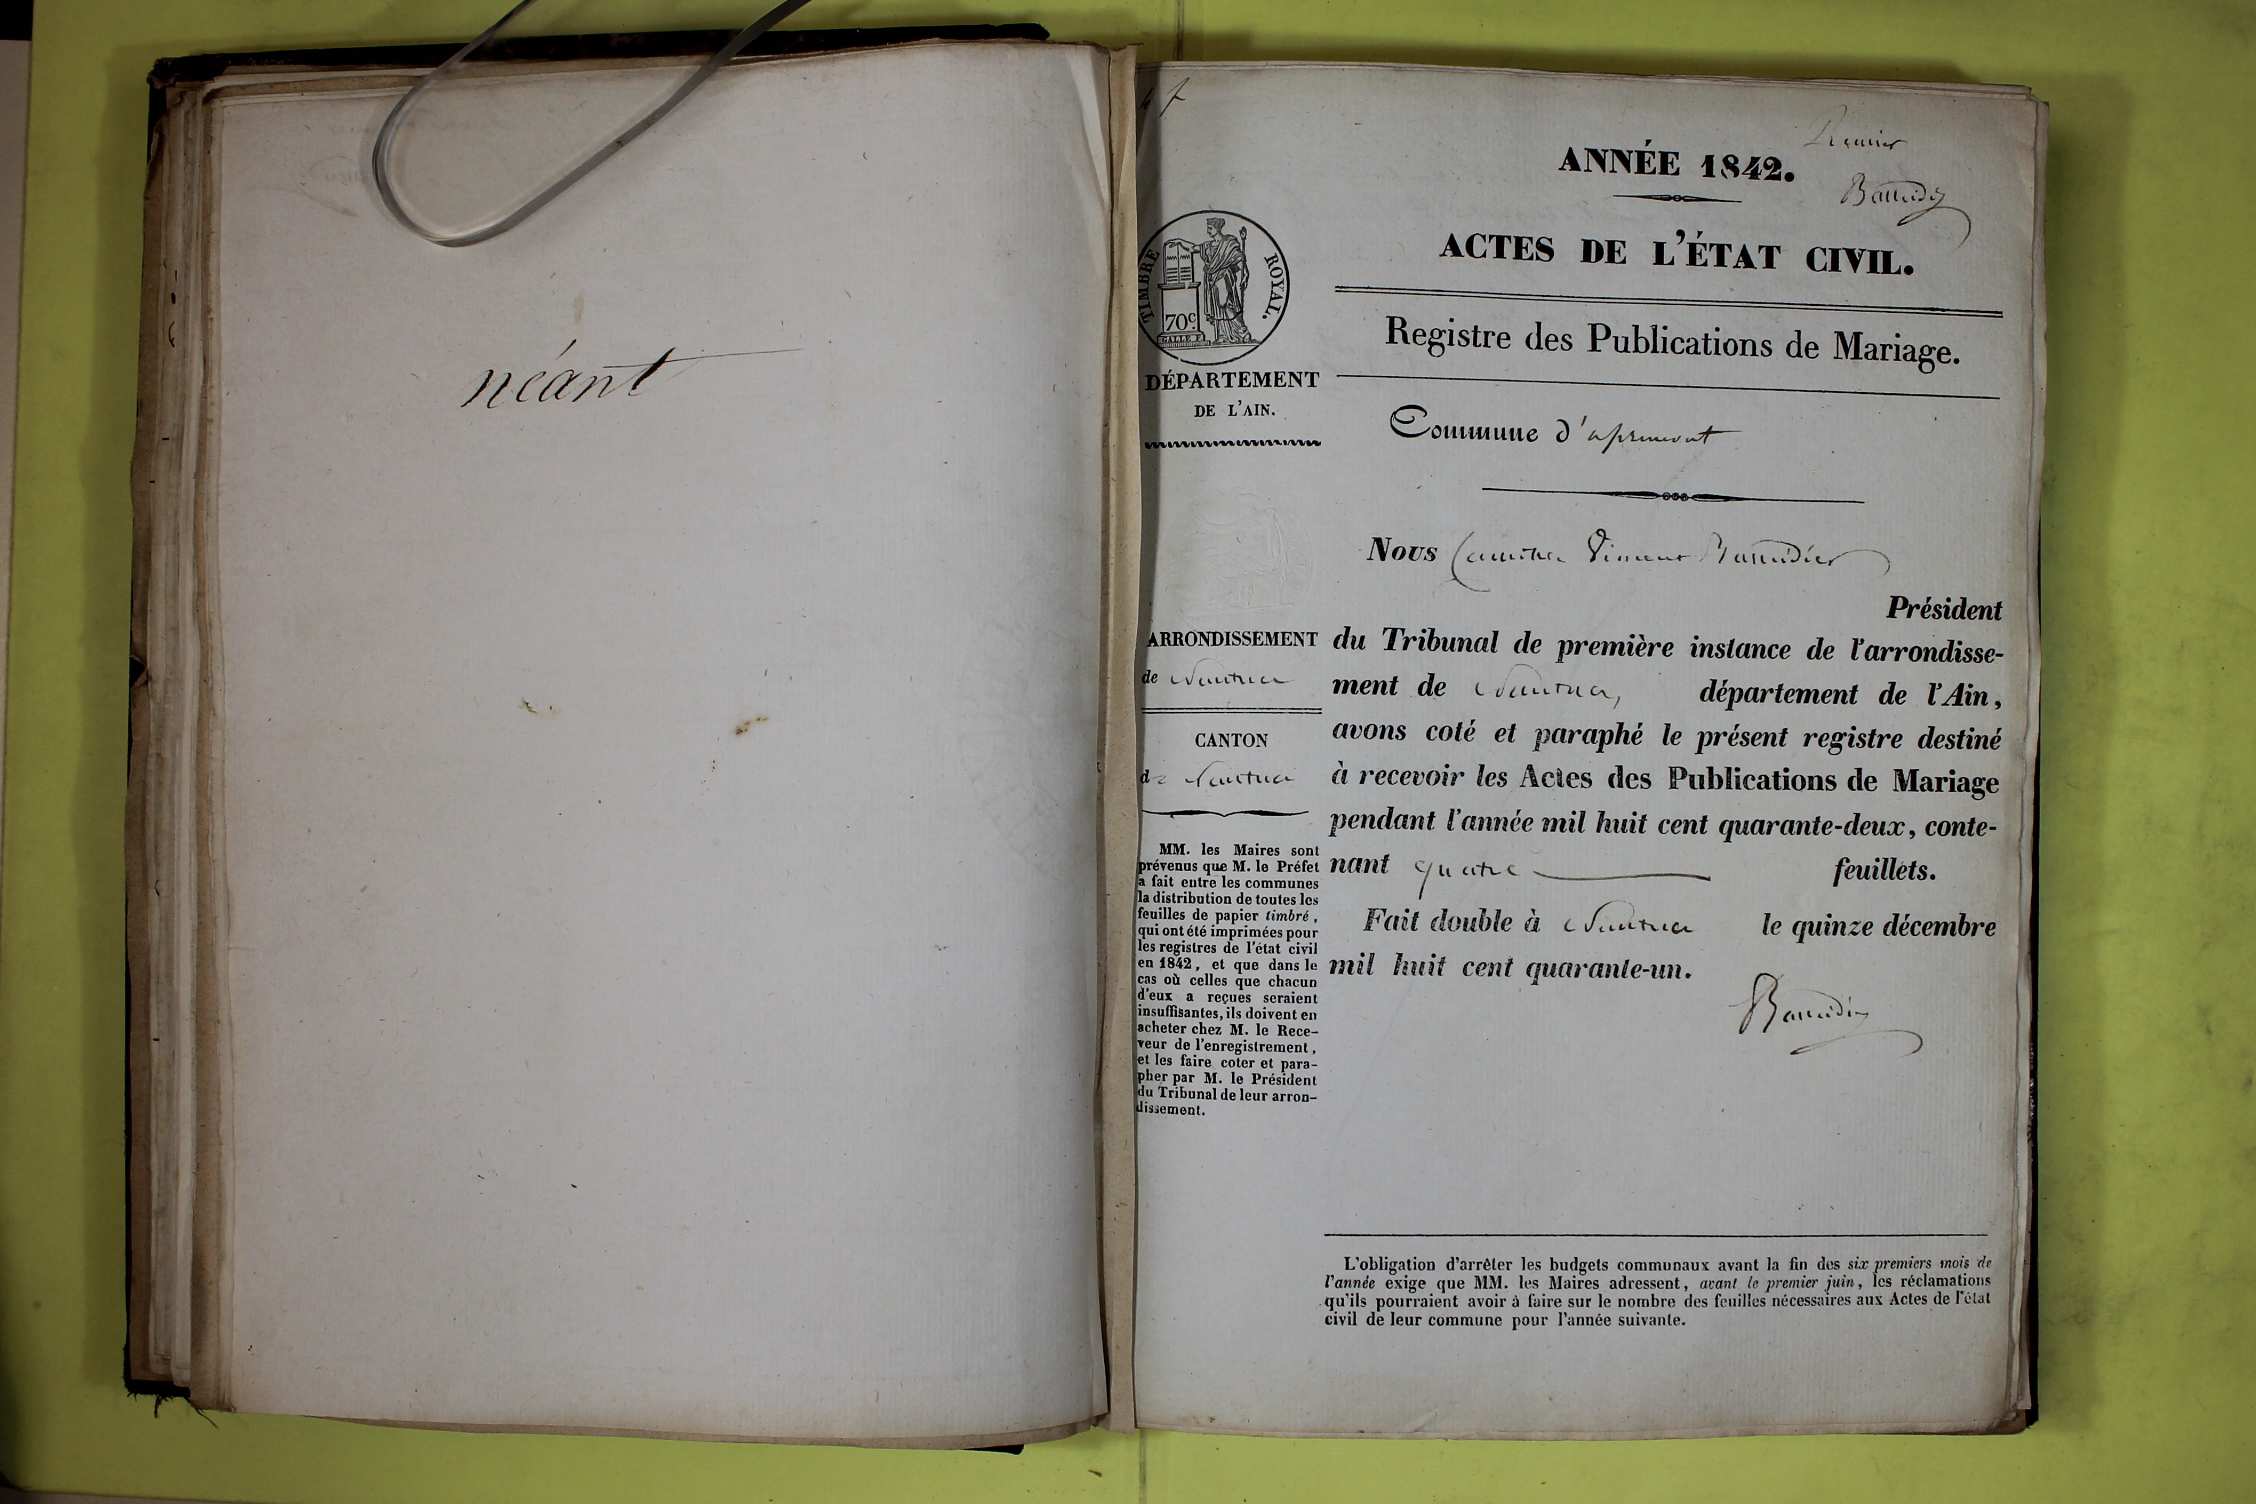 néant
4 f
Premier
ANNÉE 1842.
Baudi
ACTES DE L'ÉTAT CIVIL.
TIMBRE ROYAL.
70c.
GALLE F.
Registre des Publications de Mariage.
DÉPARTEMENT
DE L'AIN.
Commune d'apremont
ARRONDISSEMENT
de Nantua
CANTON
de Nantua
MM. les Maires sont
prévenus que M. le Préfet
a fait entre les communes
la distribution de toutes les
feuilles de papier timbré,
qui ont été imprimées pour
les registres de l'état civil
en 1842, et que dans le
cas où celles que chacun
d'eux a reçues seraient
insuffisantes, ils doivent en
acheter chez M. le Rece-
veur de l'enregistrement,
et les faire coter et para-
pher par M. le Président
du Tribunal de leur arron-
dissement.
Nous
Président
du Tribunal de première instance de l'arrondisse-
ment de Nantua, département de l'Ain,
avons coté et paraphé le présent registre destiné
à recevoir les Actes des Publications de Mariage
pendant l'année mil huit cent quarante-deux, conte-
nant quatre feuillets.
Fait double à Nantua le quinze décembre
mil huit cent quarante-un.
L'obligation d'arrêter les budgets communaux avant la fin des six premiers mois de
l'année exige que MM. les Maires adressent, avant le premier juin, les réclamations
qu'ils pourraient avoir à faire sur le nombre des feuilles nécessaires aux Actes de l'état
civil de leur commune pour l'année suivante.